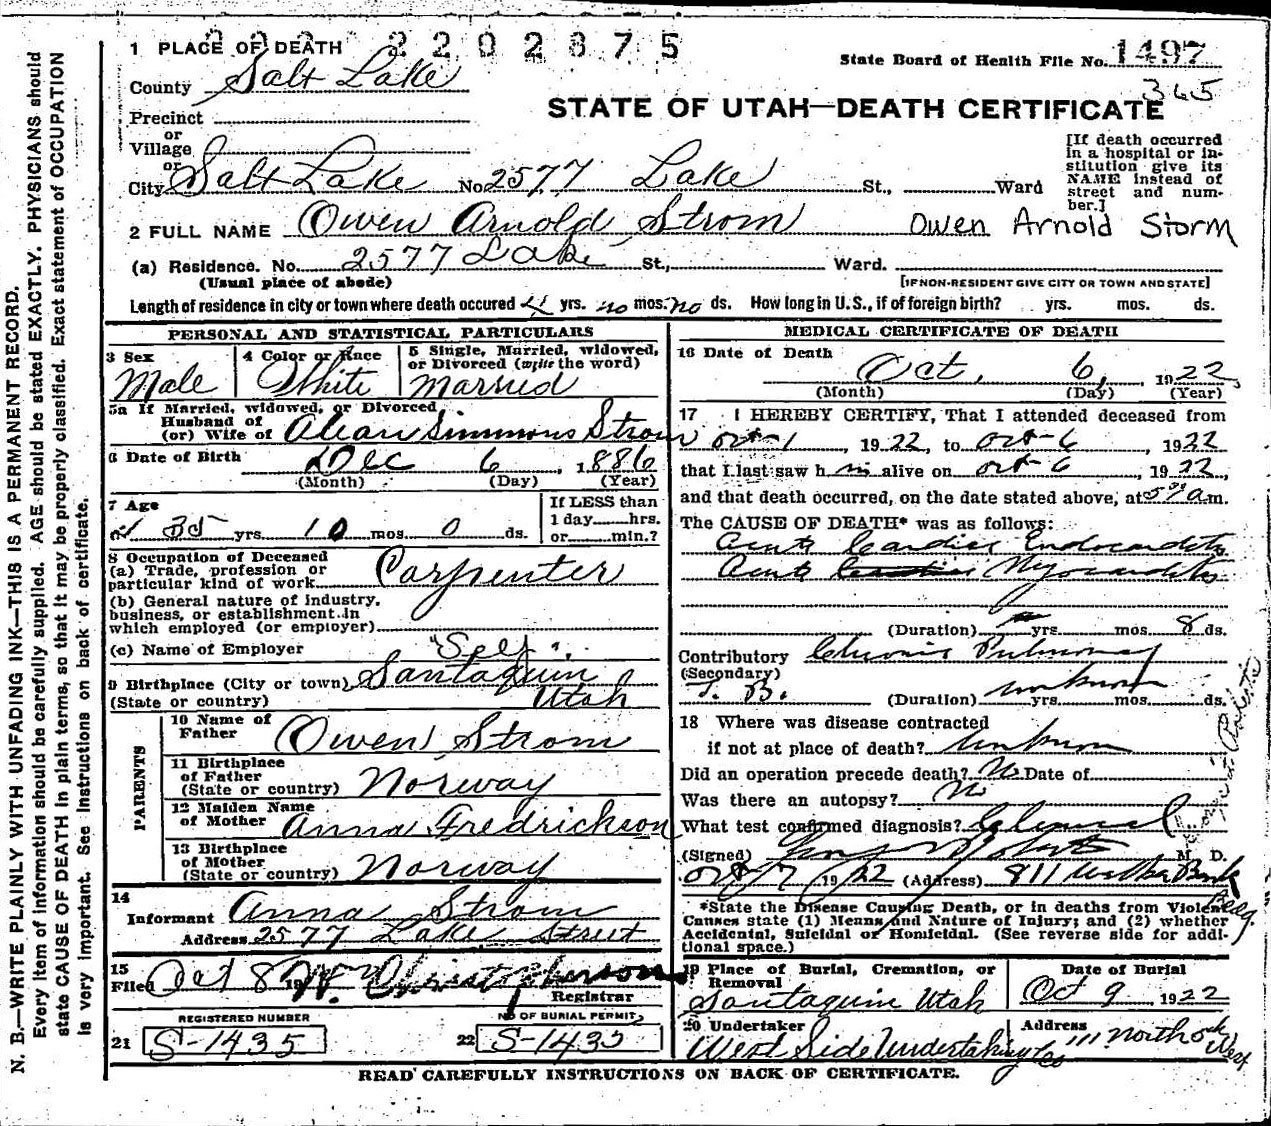 2202875
1 PLACE OF DEATH
State Board of Health File No. 1497
County Salt Lake
365
STATE OF UTAH—DEATH CERTIFICATE
Precinct
or
Village
or
City Salt Lake No. 2577 Lake St., Ward
[If death occurred
in a hospital or in-
stitution give its
NAME instead of
street and num-
ber.]
2 FULL NAME Owen Arnold Strom Owen Arnold Storm
(a) Residence. No. 2577 Lake St., Ward.
(Usual place of abode) [IF NON-RESIDENT GIVE CITY OR TOWN AND STATE]
Length of residence in city or town where death occured yrs. no mos. no ds. How long in U.S., if of foreign birth? yrs. mos. ds.
PERSONAL AND STATISTICAL PARTICULARS
3 Sex
Male
4 Color or Race
White
5 Single, Married, widowed,
or Divorced (write the word)
Married
5a If Married, widowed, or Divorced
Husband of
(or) Wife of Simmons Strom
6 Date of Birth
Dec 6, 1886
(Month) (Day) (Year)
7 Age
35 yrs. 10 mos. 0 ds.
If LESS than
1 day hrs.
or min.?
8 Occupation of Deceased
(a) Trade, profession or
particular kind of work Carpenter
(b) General nature of industry,
business, or establishment in
which employed (or employer)
(c) Name of Employer "Self"
9 Birthplace (City or town) Santaquin
(State or country) Utah
PARENTS
10 Name of
Father Owen Strom
11 Birthplace
of Father
(State or country) Norway
12 Maiden Name
of Mother Anna Fredrickson
13 Birthplace
of Mother
(State or country) Norway
14
Informant Anna Strom
Address 2577 Lake Street
15
Filed Oct 8 19 Wm Christopherson
Registrar
REGISTERED NUMBER
21 S-1435
NO OF BURIAL PERMIT
22 S-1435
MEDICAL CERTIFICATE OF DEATH
16 Date of Death
Oct, 6, 1922
(Month) (Day) (Year)
17 I HEREBY CERTIFY, That I attended deceased from
Oct-1, 1922, to Oct-6 1922
that I last saw h im alive on Oct-6 1922,
and that death occurred, on the date stated above, at a m.
The CAUSE OF DEATH* was as follows:
Acute Cardiac Endocarditis
Acute Cardiac Myocarditis
(Duration) yrs. mos. 8 ds.
Contributory Chronic Pulmonary
(Secondary)
T. B. (Duration) unknown yrs. mos. ds.
18 Where was disease contracted
if not at place of death? Unknown
Did an operation precede death? No Date of
Was there an autopsy? No
What test confirmed diagnosis? Clinical
(Signed) George Roberts M. D.
Oct 7 1922 (Address) 811 Walker Bank
Bldg.
*State the Disease Causing Death, or in deaths from Violent
Causes state (1) Means and Nature of Injury; and (2) whether
Accidental, Suicidal or Homicidal. (See reverse side for addi-
tional space.)
19 Place of Burial, Cremation, or
Removal
Santaquin Utah
Date of Burial
Oct 9, 1922
20 Undertaker
West Side Undertaking Co
Address
111 North West
READ CAREFULLY INSTRUCTIONS ON BACK OF CERTIFICATE.
N. B.—WRITE PLAINLY WITH UNFADING INK—THIS IS A PERMANENT RECORD.
Every item of information should be carefully supplied. AGE should be stated EXACTLY. PHYSICIANS should
state CAUSE OF DEATH in plain terms, so that it may be properly classified. Exact statement of OCCUPATION
is very important. See instructions on back of certificate.